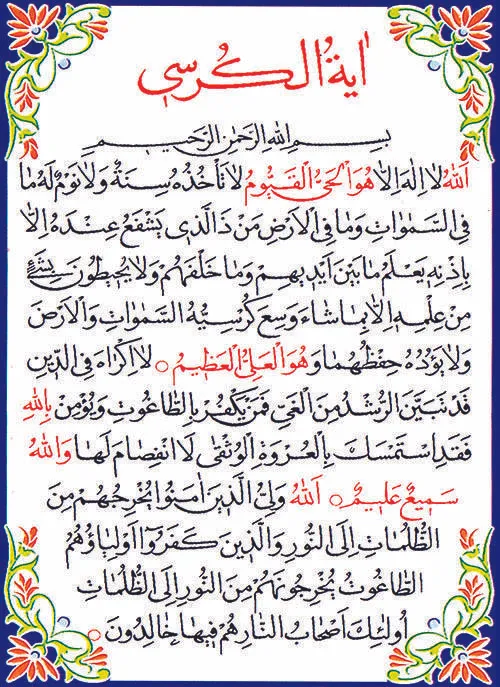 اٰيةُ الكُرسي
بِسمِ اللهِ الرَّحمٰنِ الرَّحيم
اَللهُ لا اِلٰهَ اِلاّ هُوَ الحَيُّ القَيّومُ لا تَأخُذُهُ سِنَةٌ وَلا نَومٌ لَهُ ما
فِي السَّمٰواتِ وَما فِي الاَرضِ مَن ذَا الَّذي يَشفَعُ عِندَهُ اِلاّ
بِاِذنِهِ يَعلَمُ ما بَينَ اَيديهِم وَما خَلفَهُم وَلا يُحيطونَ بِشَيءٍ
مِن عِلمِهِ اِلاّ بِما شاءَ وَسِعَ كُرسِيُّهُ السَّمٰواتِ وَالاَرضَ
وَلا يَؤُدُهُ حِفظُهُما وَهُوَ العَلِيُّ العَظيمُ ○ لا اِكراهَ فِي الدّينِ
قَد تَبَيَّنَ الرُّشدُ مِنَ الغَيِّ فَمَن يَكفُر بِالطّاغوتِ وَيُؤمِن بِاللهِ
فَقَدِ استَمسَكَ بِالعُروَةِ الوُثقىٰ لاَ انفِصامَ لَها وَاللهُ
سَميعٌ عَليمٌ ○ اَللهُ وَلِيُّ الَّذينَ اٰمَنوا يُخرِجُهُم مِنَ
الظُّلُماتِ اِلَى النّورِ وَالَّذينَ كَفَروا اَولِياؤُهُمُ
الطّاغوتُ يُخرِجونَهُم مِنَ النّورِ اِلَى الظُّلُماتِ
اُولٰئِكَ اَصحابُ النّارِ هُم فيها خالِدونَ ○